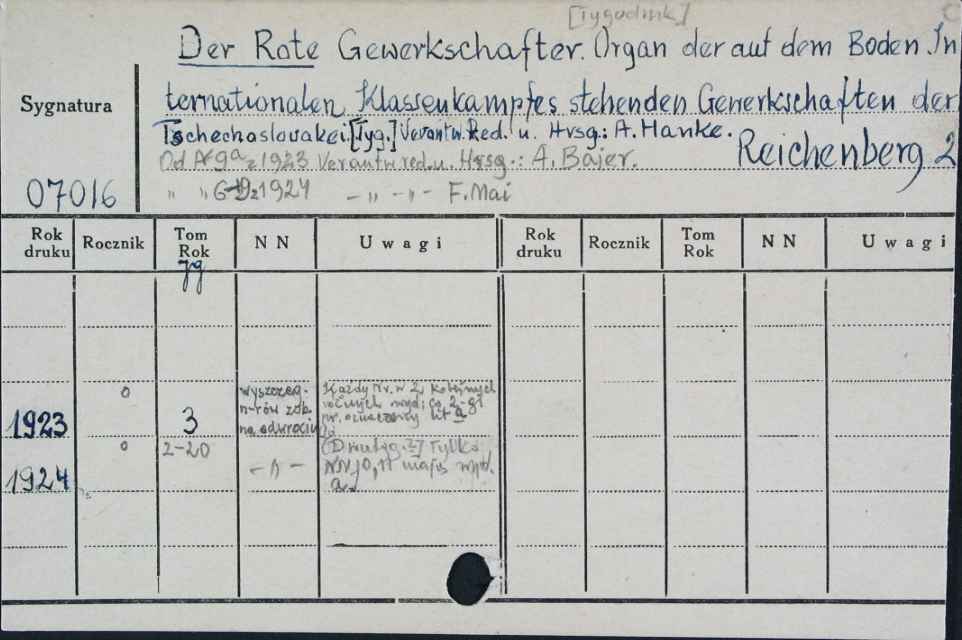 [Tygodnik]
Der Rote Gewerkschafter. Organ der auf dem Boden In
ternationalen Klassenkampfes stehenden Gewerkschaften der
Tschechoslovakei. [Tyg.] Verantw. Red. u. Hrsg.: A. Hanke.
Reichenberg 2
Od Nr 9a z 1923 Verantw. red. u. Hrsg.: A. Bajer.
" " z 1924 - " - " - F. Mai
Sygnatura
07016
Rok druku Rocznik Tom Rok NN Uwagi Rok druku Rocznik Tom Rok NN Uwagi
Jg
1923 0 3 wyszczeg. n-rów zob. na odwrociu Każdy Nr. w 2 kolejnych
nr. oznaczony lit a
1924 0 2-20 - " - Tylko
NN 10, 11 mają wyd.
a.